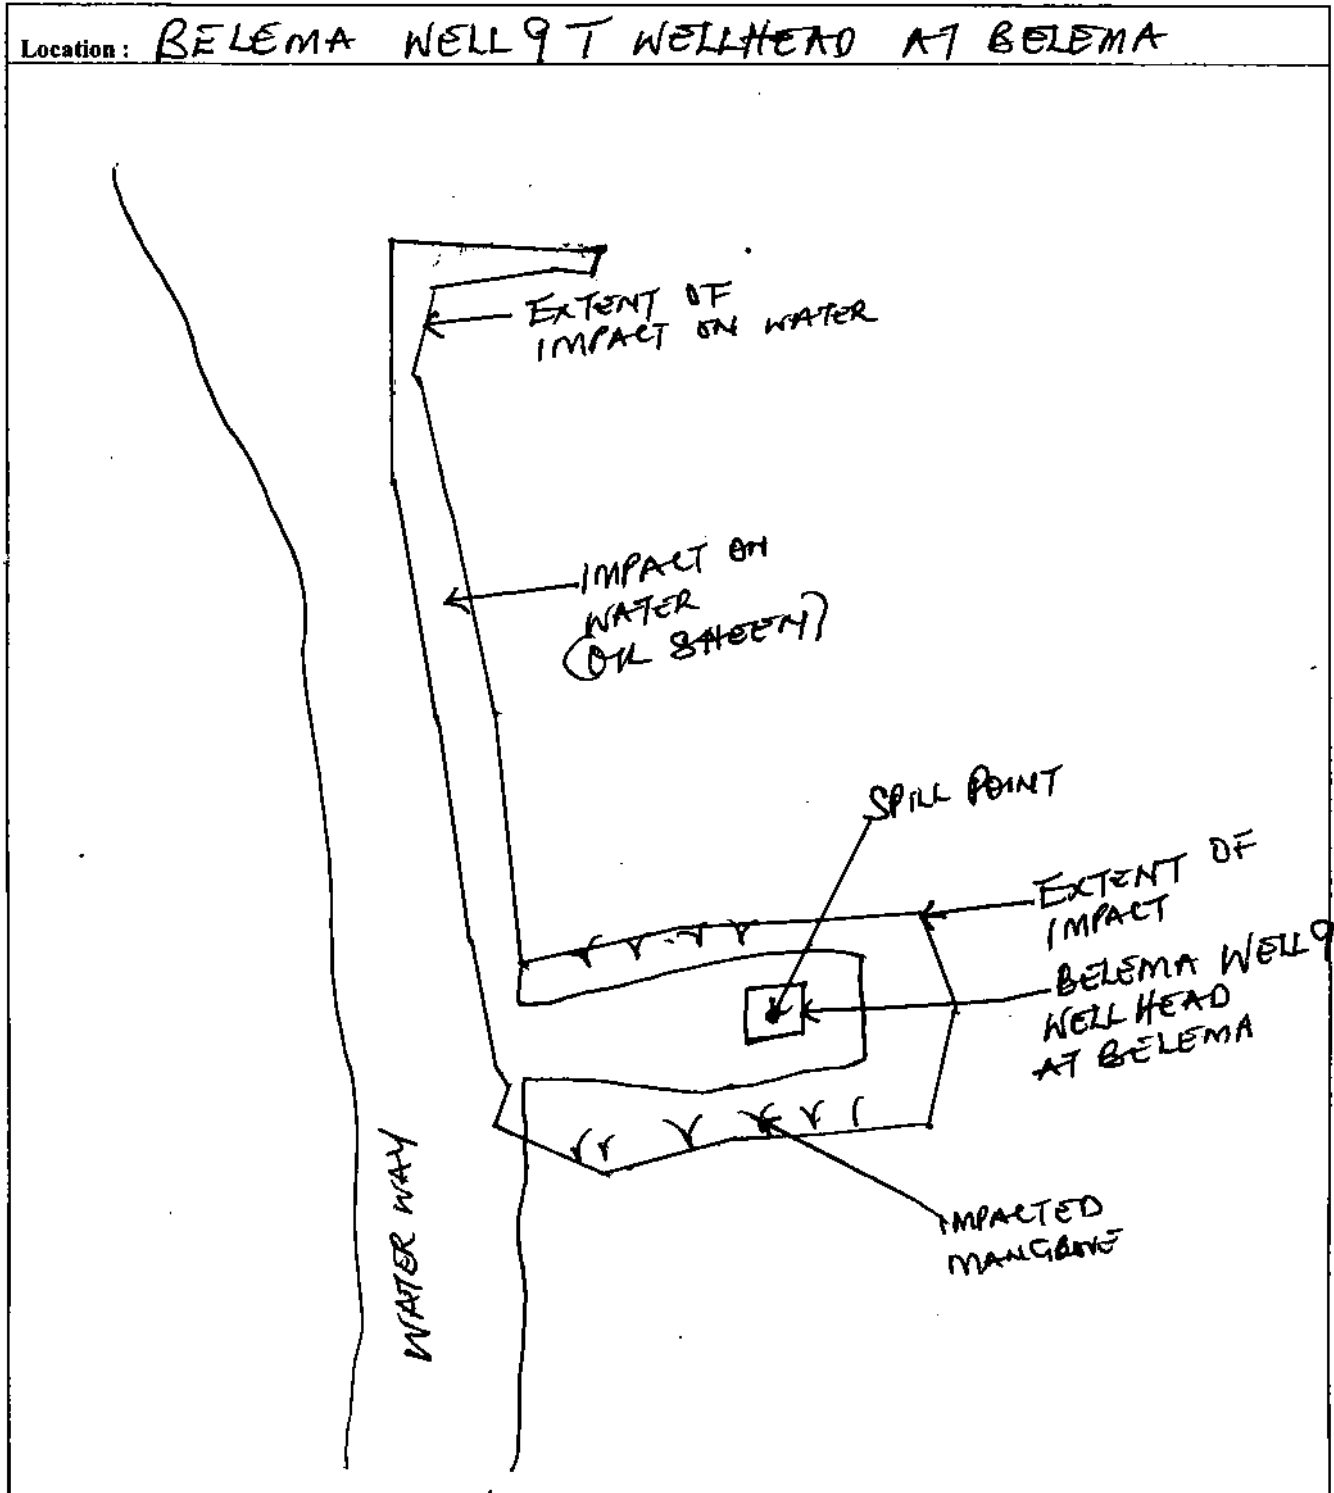 Location : BELEMA WELL 9 T WELLHEAD AT BELEMA
EXTENT OF
IMPACT ON WATER
IMPACT ON
WATER
(OIL SHEEN)
SPILL POINT
EXTENT OF
IMPACT
BELEMA WELL 9
WELL HEAD
AT BELEMA
IMPACTED
MANGROVE
WATER WAY